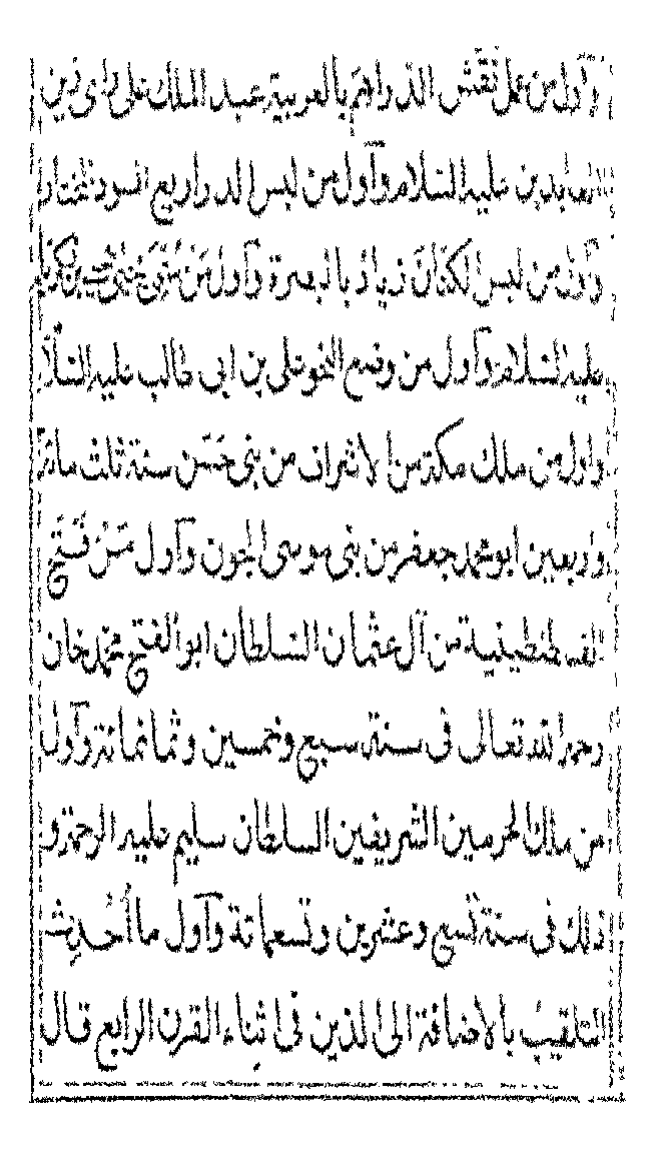 وآول من عمل نقش الدراهم بالعربية عبد الملك على راى زين
العابدين عليه السلام وآول من لبس الدراريع السود المختار
وآول من لبس الكتان زياد بالبصرة وآول من سمى
عليه السلام وآول من وضع النحو على بن ابى طالب عليه السلا
واول من ملك مكة من الاشراف من بنى حسن سنة ثلث مائة
واربعين ابو محمد جعفر من بنى موسى الجون وآول من فتح
القسطنطينية من آل عثمان السلطان ابو الفتح محمد خان
رحمه الله تعالى فى سنة سبع وخمسين وثمانمائة وآول
من ملك الحرمين الشريفين السلطان سليم عليه الرحمة و
ذلك فى سنة تسع وعشرين وتسعمائة وآول ما أحدث
التلقيب بالاضافة الى الدين فى اثناء القرن الرابع قال